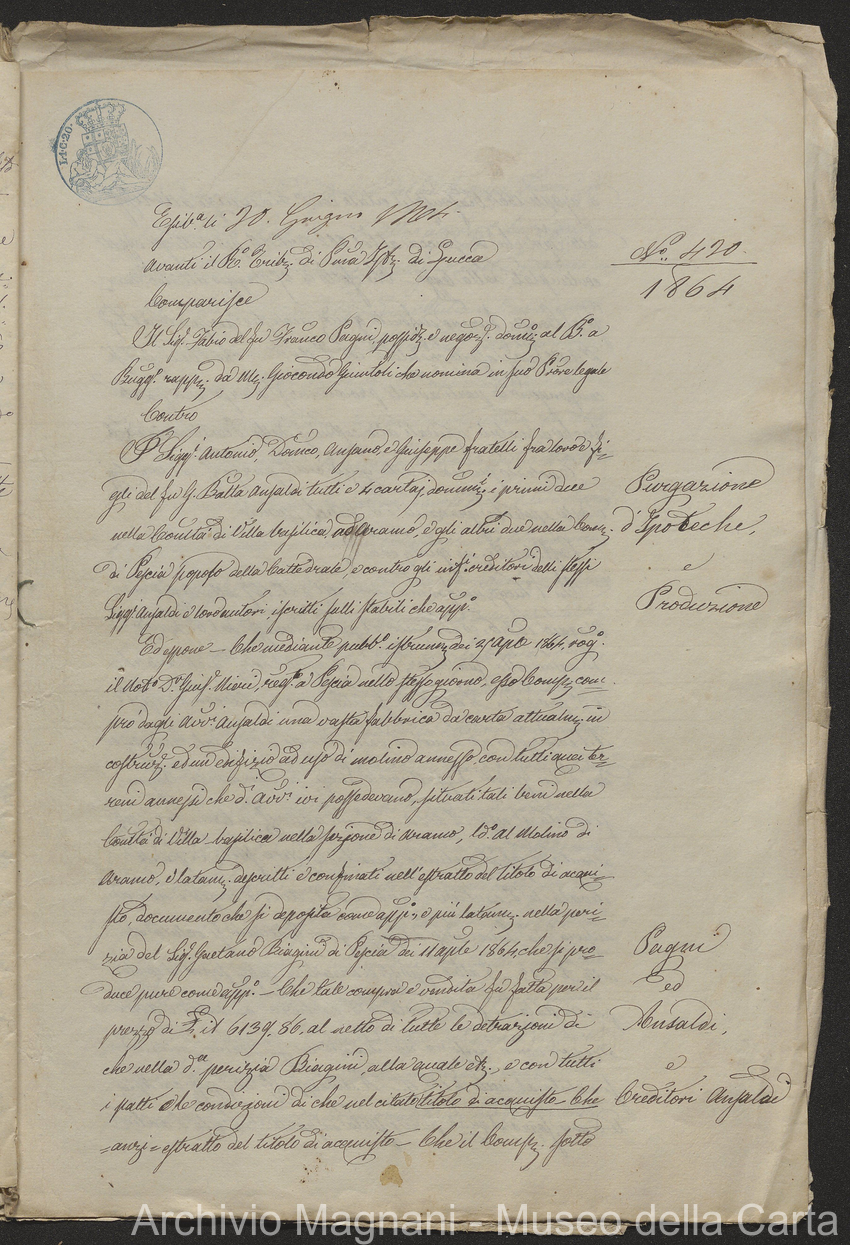 L.1.C.20.
Esib.ª li 20. Giugno 1864.
avanti il R.º Trib. di Pma Istz. di Lucca
Nº. 420.
1864
Comparisce
Il Sig. Fabio del fu Franco Pagni, possid. e negoz. domic. al B.º a
Bugg. rappr. da Mr. Giocondo Giuntoli che nomina in suo Prore legale
Contro
I Sigg. Antonio, Domco, Ansano, e Giuseppe fratelli fra loro e fi-
gli del fu G. Batta Ansaldi tutti e 4 cartaj, domict. i primi due
nella Comltà di Villa basilica, ad Aramo, e gli altri due nella Com.
di Pescia popolo della Cattedrale, e contro gli infi. creditori delli stessi
Sigg. Ansaldi e loro autori, iscritti sulli stabili che app.º
Purgazione
d'Ipoteche,
e
Produzione
Ed espone = Che mediante pubb.º istrum. dei 25 Aple 1864, rog.
il Not.º D.r Gius. Nieri, reg.º a Pescia nello stesso giorno, esso Comp. com-
prò dagli Avv. Ansaldi una vasta fabbrica da carta attualm. in
costruz. ed un edifizio ad uso di molino annesso, con tutti quei ter-
reni annessi che d. Avv. ivi possedevano, situati tali beni nella
Comltà di Villa basilica nella sezione di Aramo, l.d. al Molino di
Aramo, e latam. descritti e confinati nell'estratto del titolo di acqui-
sto, documento che si deposita come app.º, e più latam. nella peri-
zia del Sig. Gaetano Biagini di Pescia dei 11 aple 1864, che si pro-
duce pure come app.º = Che tale compra e vendita fu fatta per il
prezzo di £. it 6139. 86. al netto di tutte le detrazioni di
che nella d.ª perizia Biagini, alla quale etc., e con tutti
i patti e condizioni di che nel citato titolo di acquisto = Che
=anzi= estratto del titolo di acquisto = Che il Comp. sotto
Pagni
ed
Ansaldi,
e
Creditori Ansaldi
Archivio Magnani - Museo della Carta